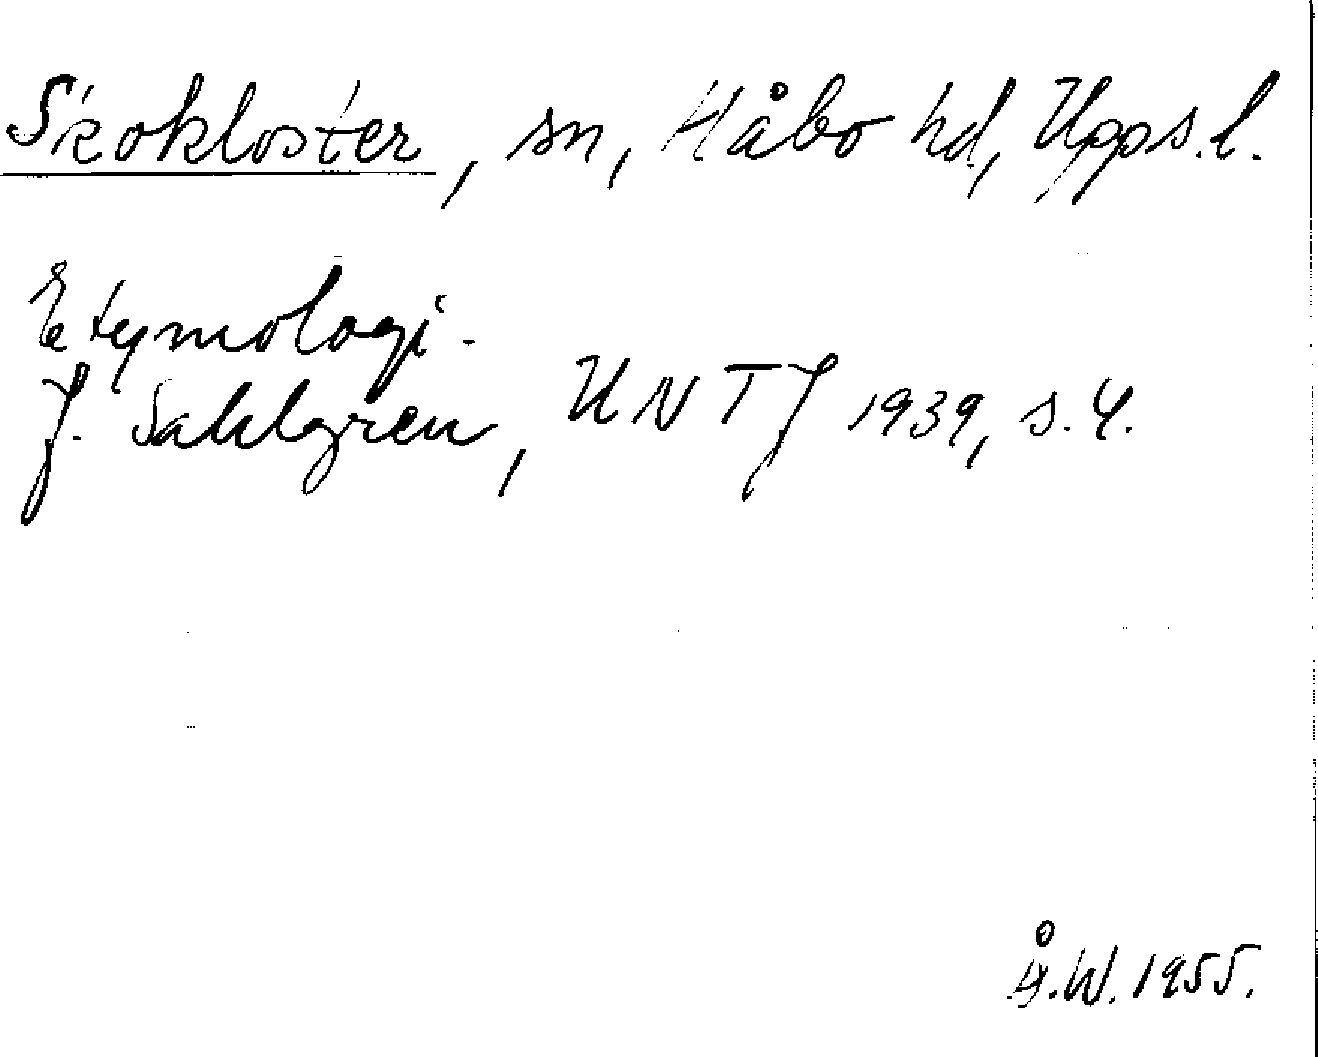 Skokloster, sn, Håbo hd, Upps.l.
Etymologi.
J. Sahlgren, UNTJ 1939, s. 4.
Å.W. 1955.